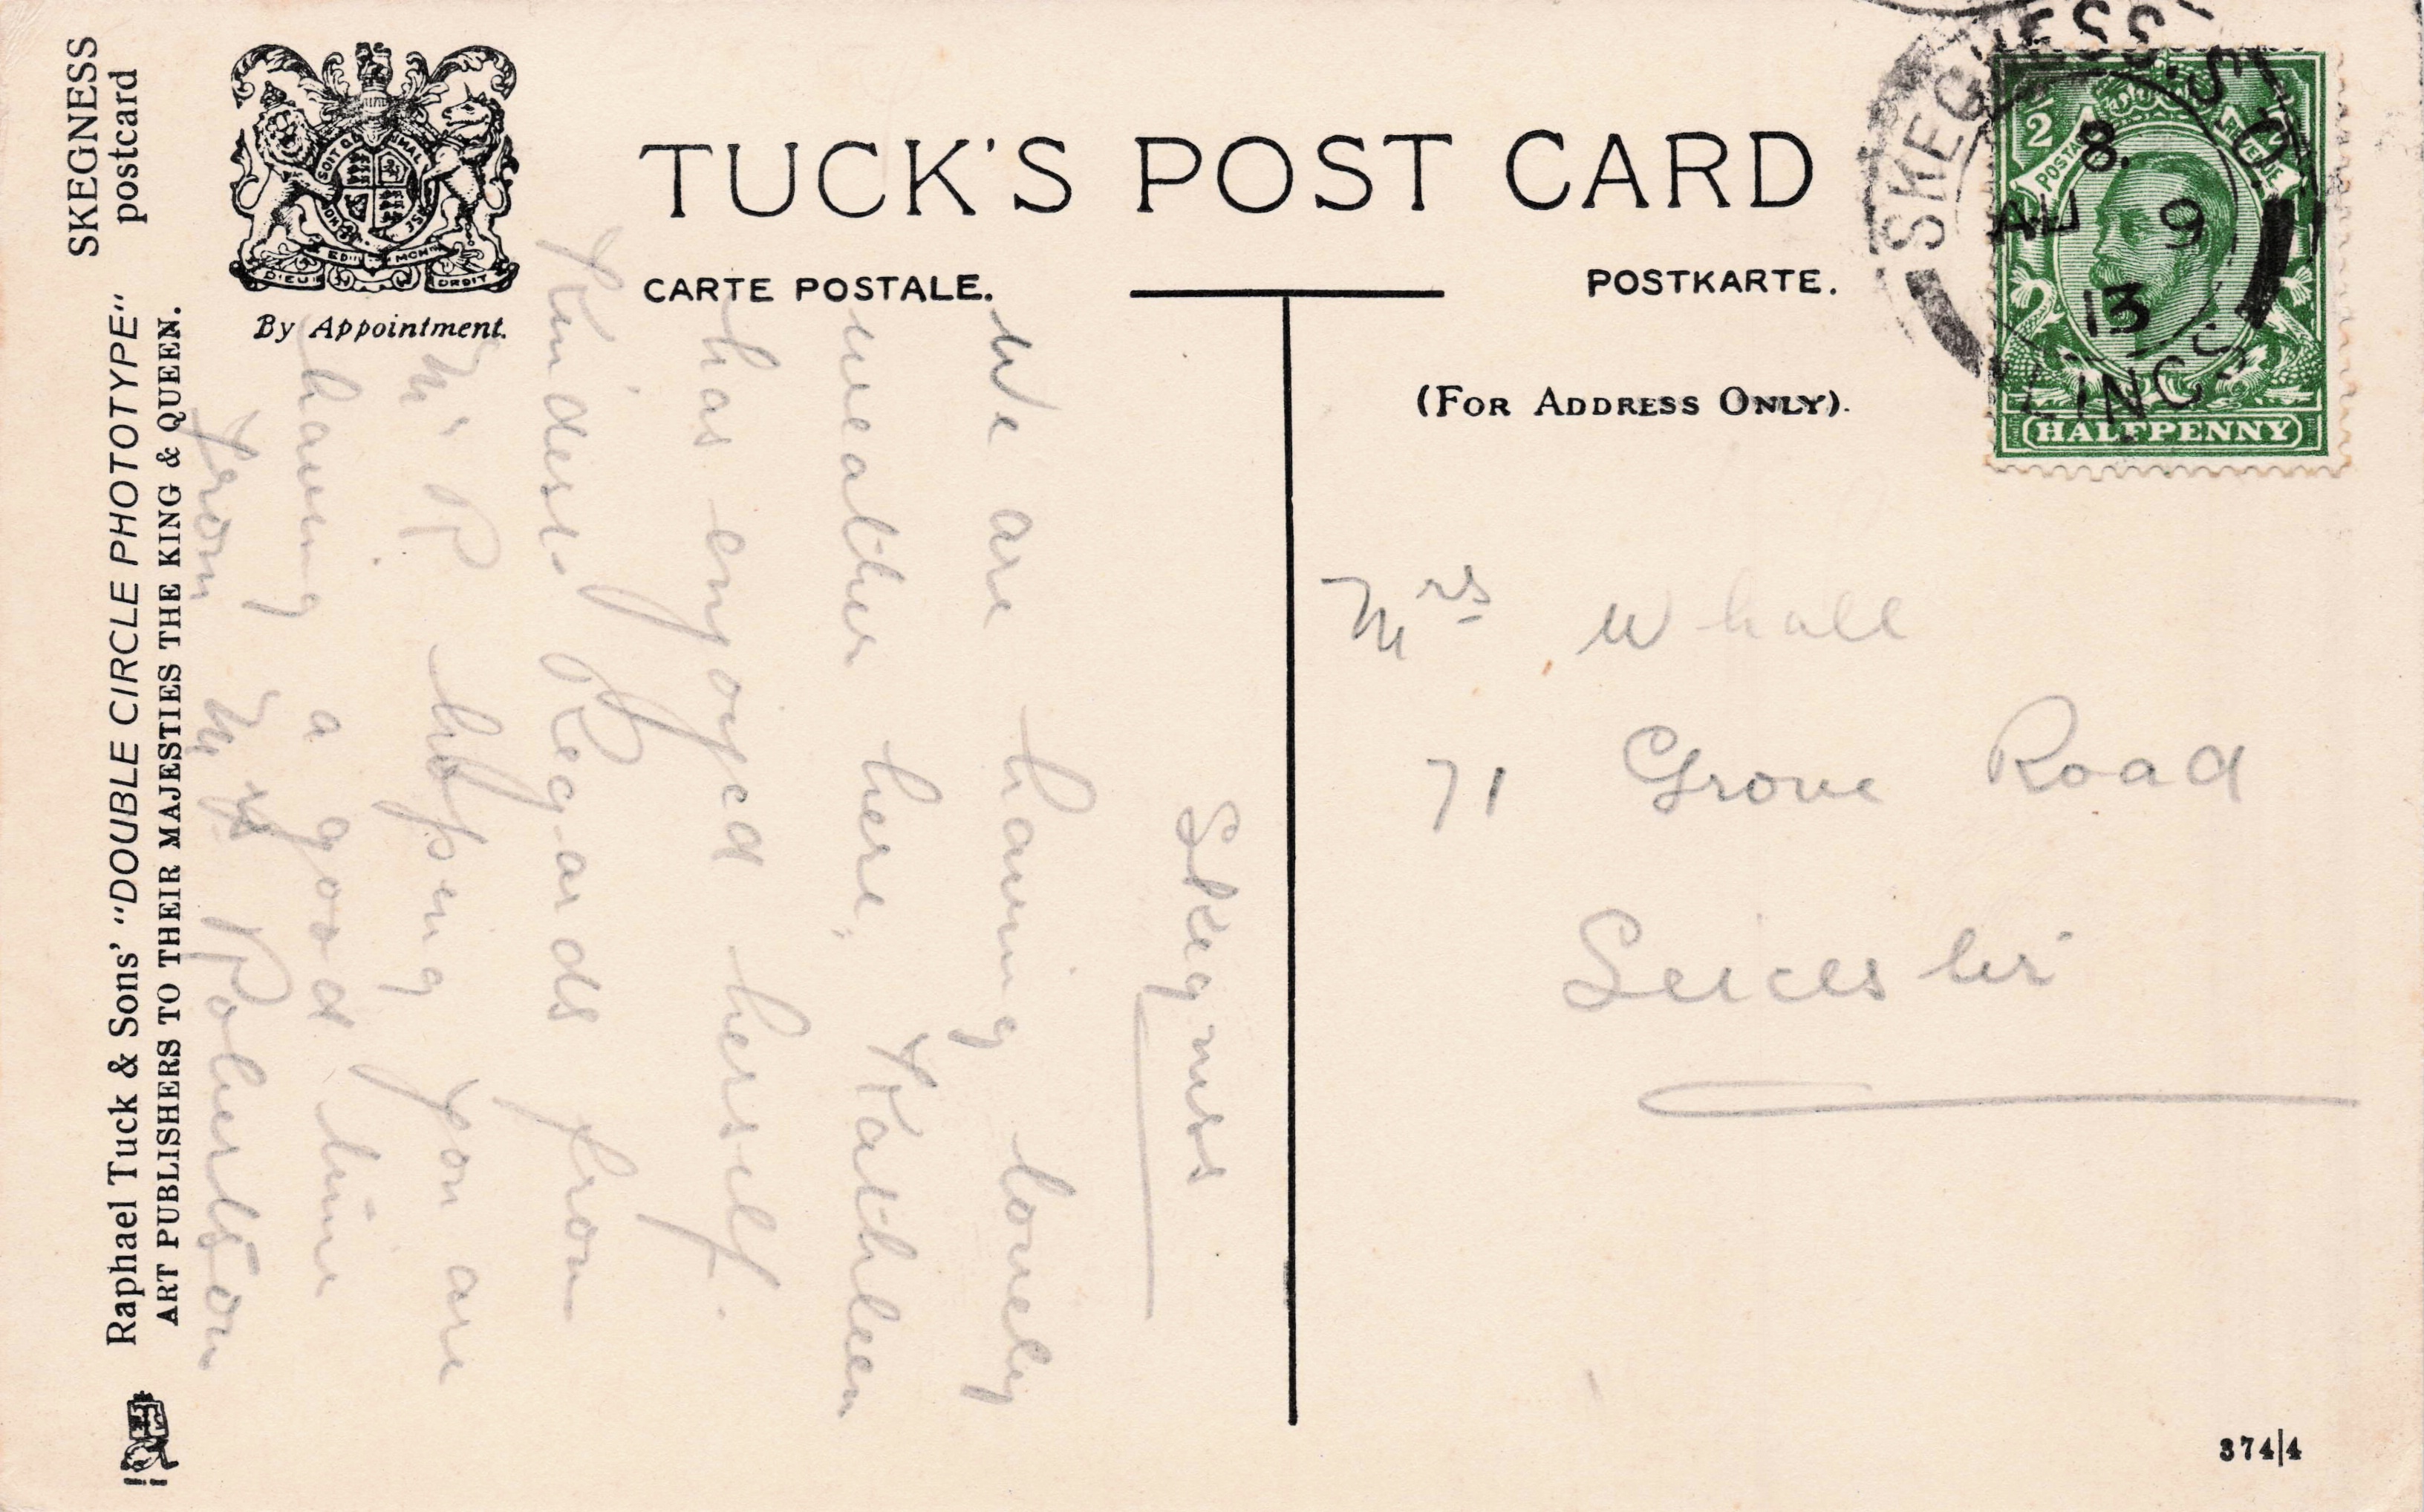 SKEGNESS
postcard
Raphael Tuck & Sons' "DOUBLE CIRCLE PHOTOTYPE"
ART PUBLISHERS TO THEIR MAJESTIES THE KING & QUEEN.
HONI SOIT QUI MAL Y PENSE
DIEU ET MON DROIT
By Appointment.
TUCK'S POST CARD
CARTE POSTALE.
POSTKARTE.
(For Address Only).
SKEGNESS. S.O.
8.
AU 9
13
LINCS
POSTAGE
REVENUE
HALFPENNY
Skegness
We are having lovely
weather here, Kathleen
has enjoyed herself.
Kindest Regards from
Mr P hoping you are
having a good time
from Mrs Robertson
Mrs Whall
71 Grove Road
Leicester
374/4